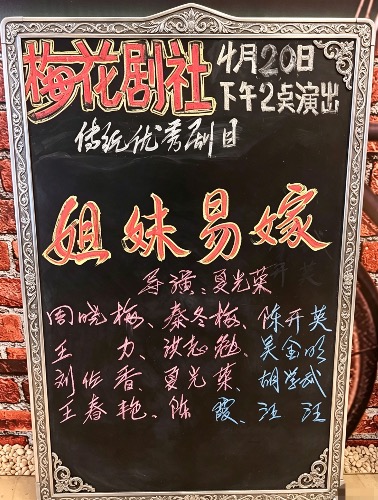 梅花剧社
4月20日
下午2点演出
传统优秀剧目
姐妹易嫁
导演：夏光荣
周晓梅、秦冬梅、陈开英
王 力、洪志勉、吴金明
刘佐香、夏光荣、胡学武
王春艳、陈 霞、汪 汪